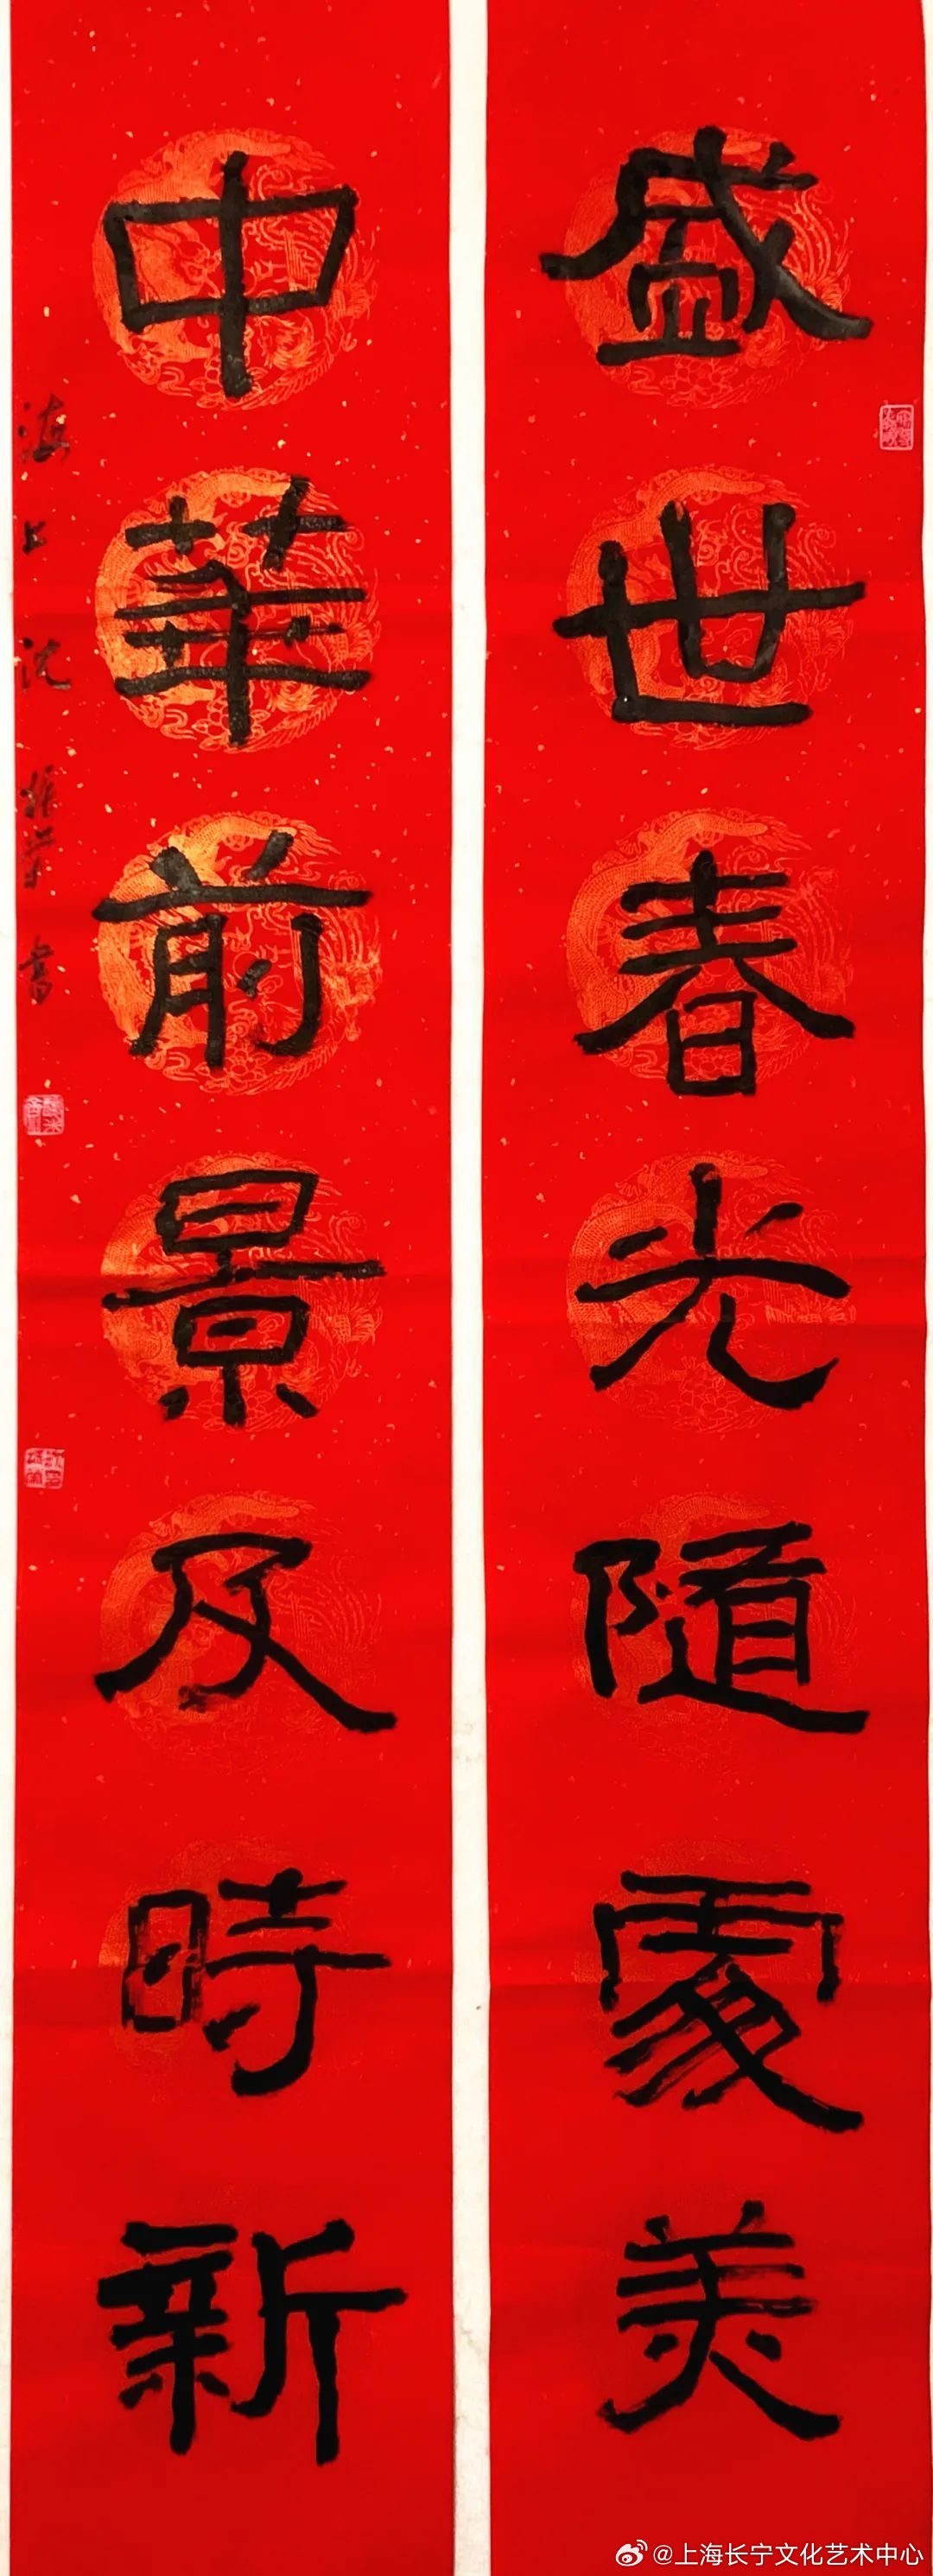 盛世春光随處美
中華前景及時新
海上沈
書
@上海长宁文化艺术中心